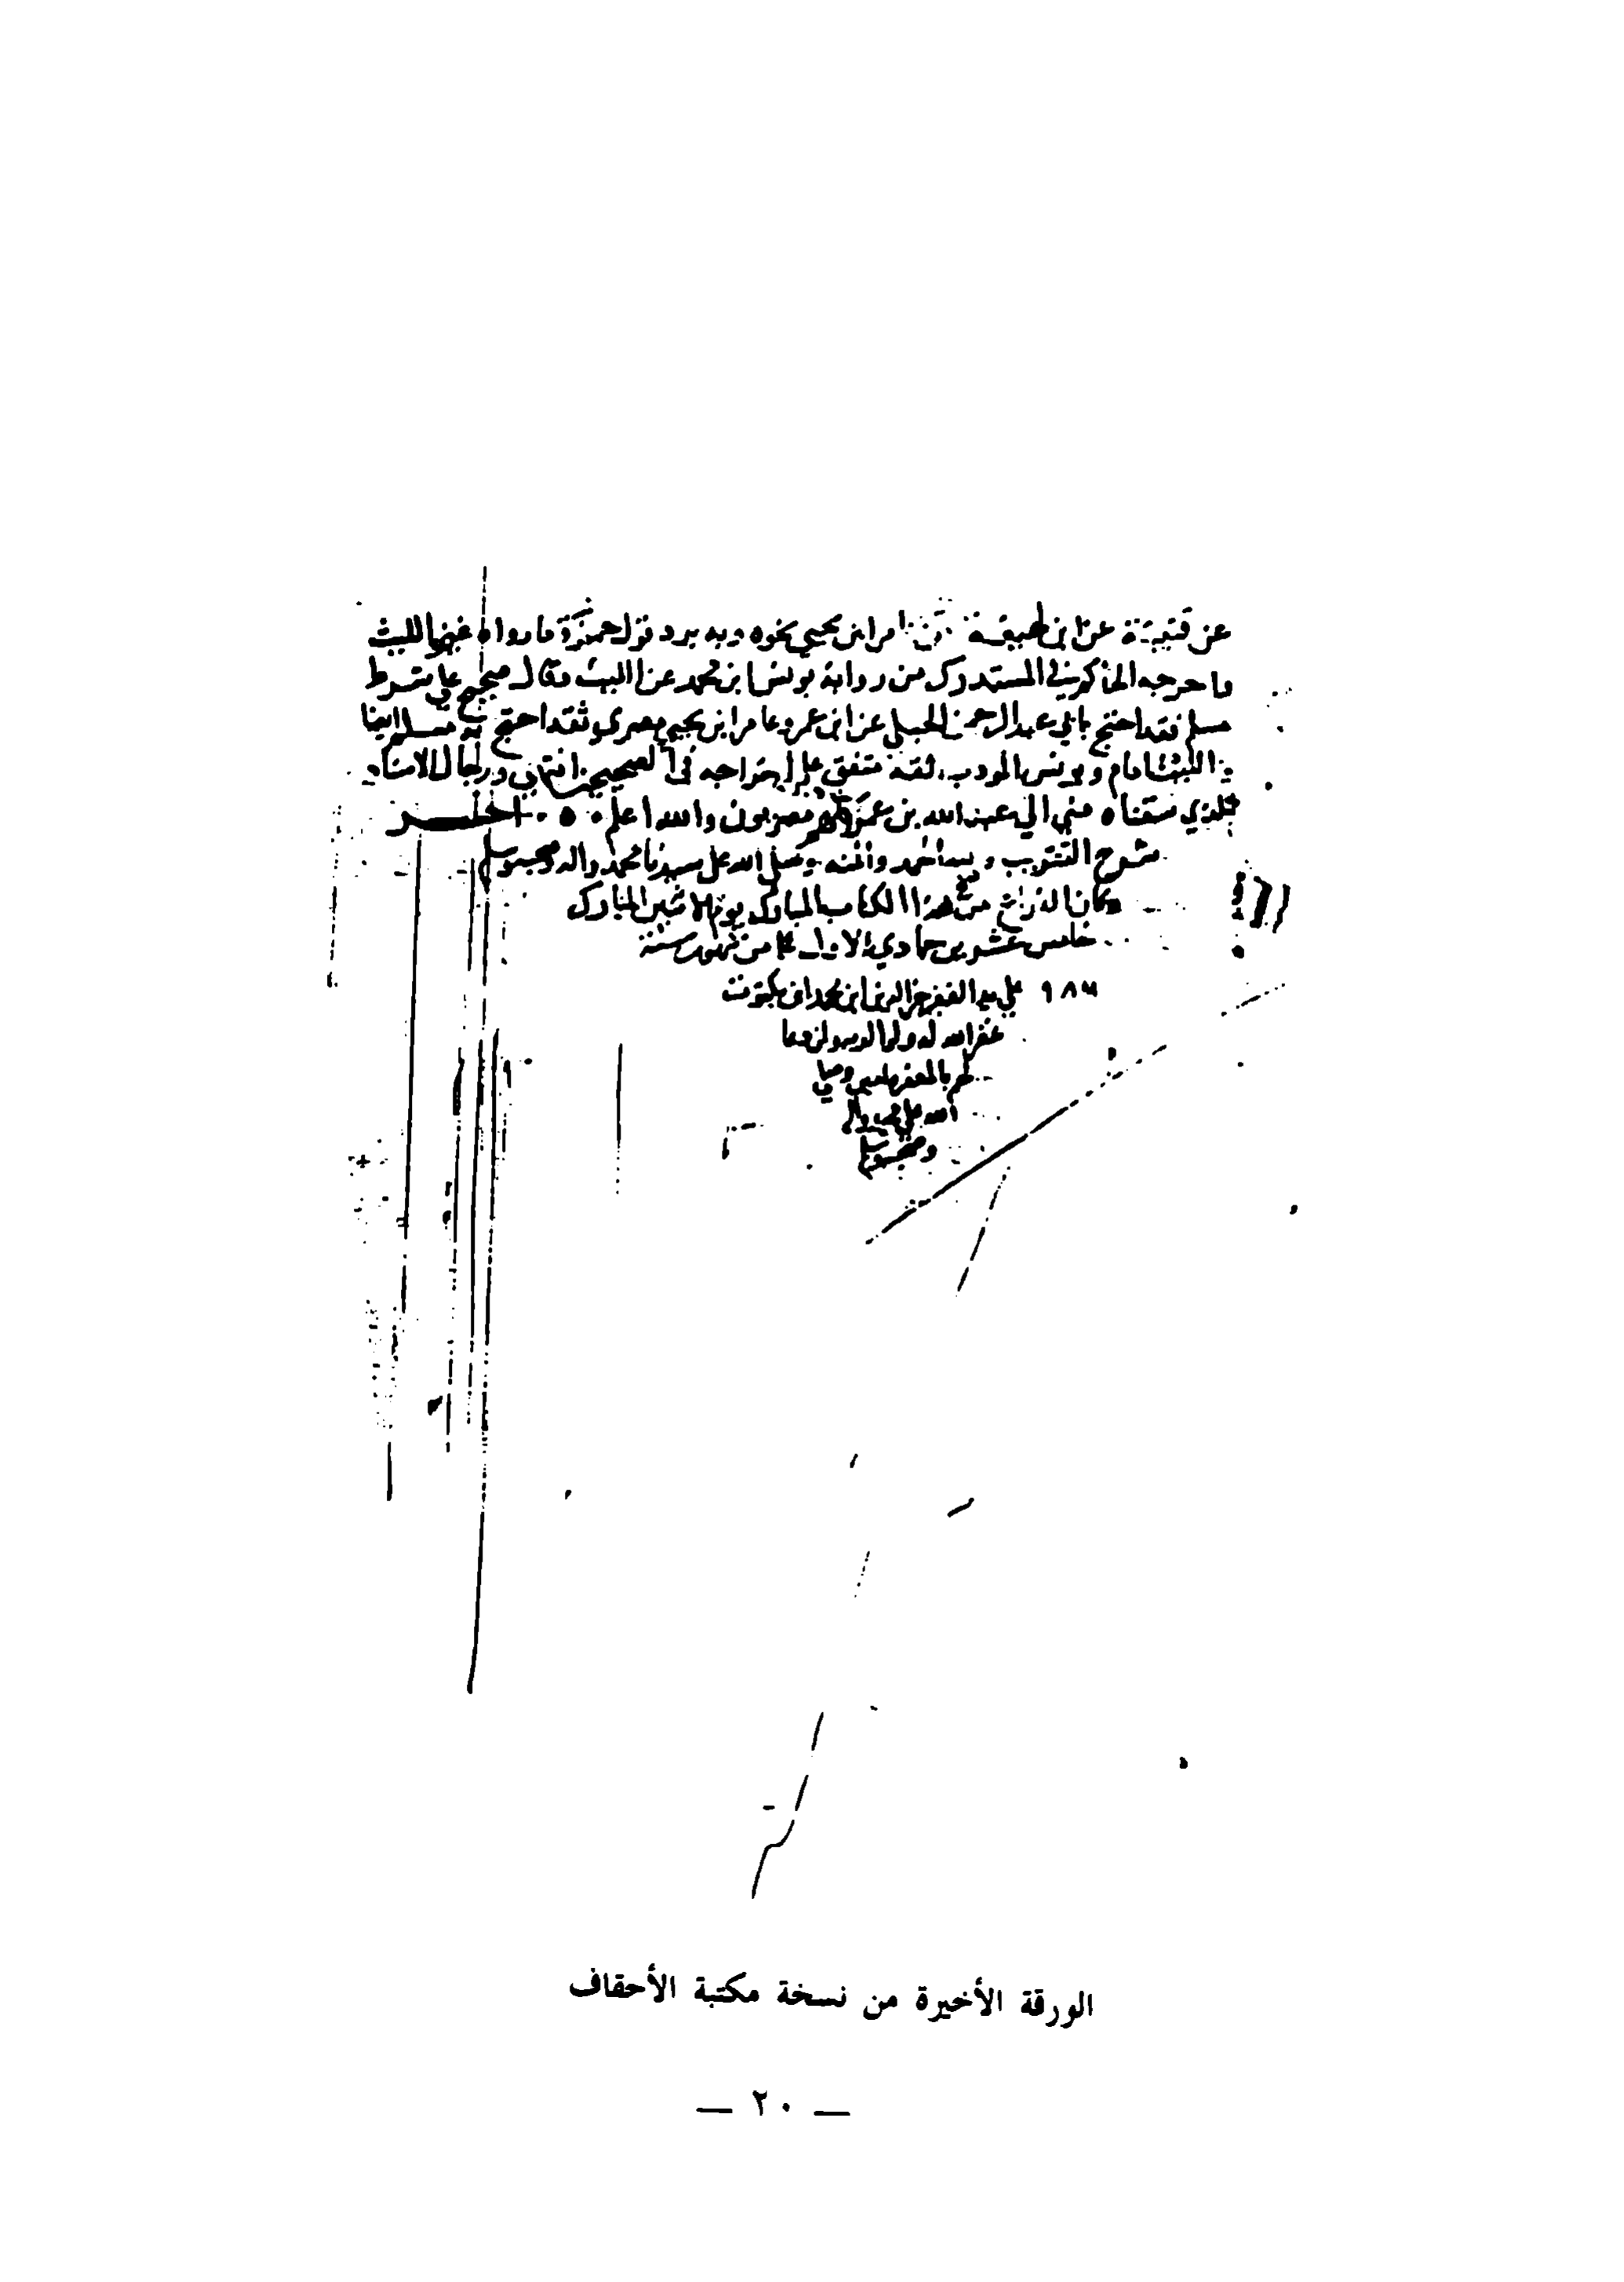 عن قتيبة عن ابن لهيعة عن عامر ابن يحيي نحوه وبه يرد قول حمزة ما رواه غيرا لليث
ما خرجه الحاكم في المستدرك من رواية يونس ابن محمد عن الليث وقال صحيح علي شرط
مسلم فقد احتج بابي عبد الرحمن الحبلي عن ابن عمرو وعامر ابن يحيي مصري ثقة احتج به مسلم ايضا
والليث امام ويونس المودب ثقة متفق علي اخراجه في الصحيحين انتهي ورجال الاسناد
الذي سقناه مني الي عبد الله بن عمرو كلهم مصريون والله اعلم . ه . اخــر
شرح التقريب ولله الحمد والمنه وصلي الله علي سيدنا محمد واله وصحبه وسلم
وكان الفراغ من هذا الكتاب المبارك يوم الاثنين المبارك
خامس عشرين جمادي الاول من شهور سنة
علي يد الفقير ابن محمد ابن
غفر الله له ولوالديه ولمن دعا
لهم بالمغفره وصلي
الله علي محمد واله
وصحبه وسلم
الورقة الأخيرة من نسخة مكتبة الأحقاف
— ٢٠ —